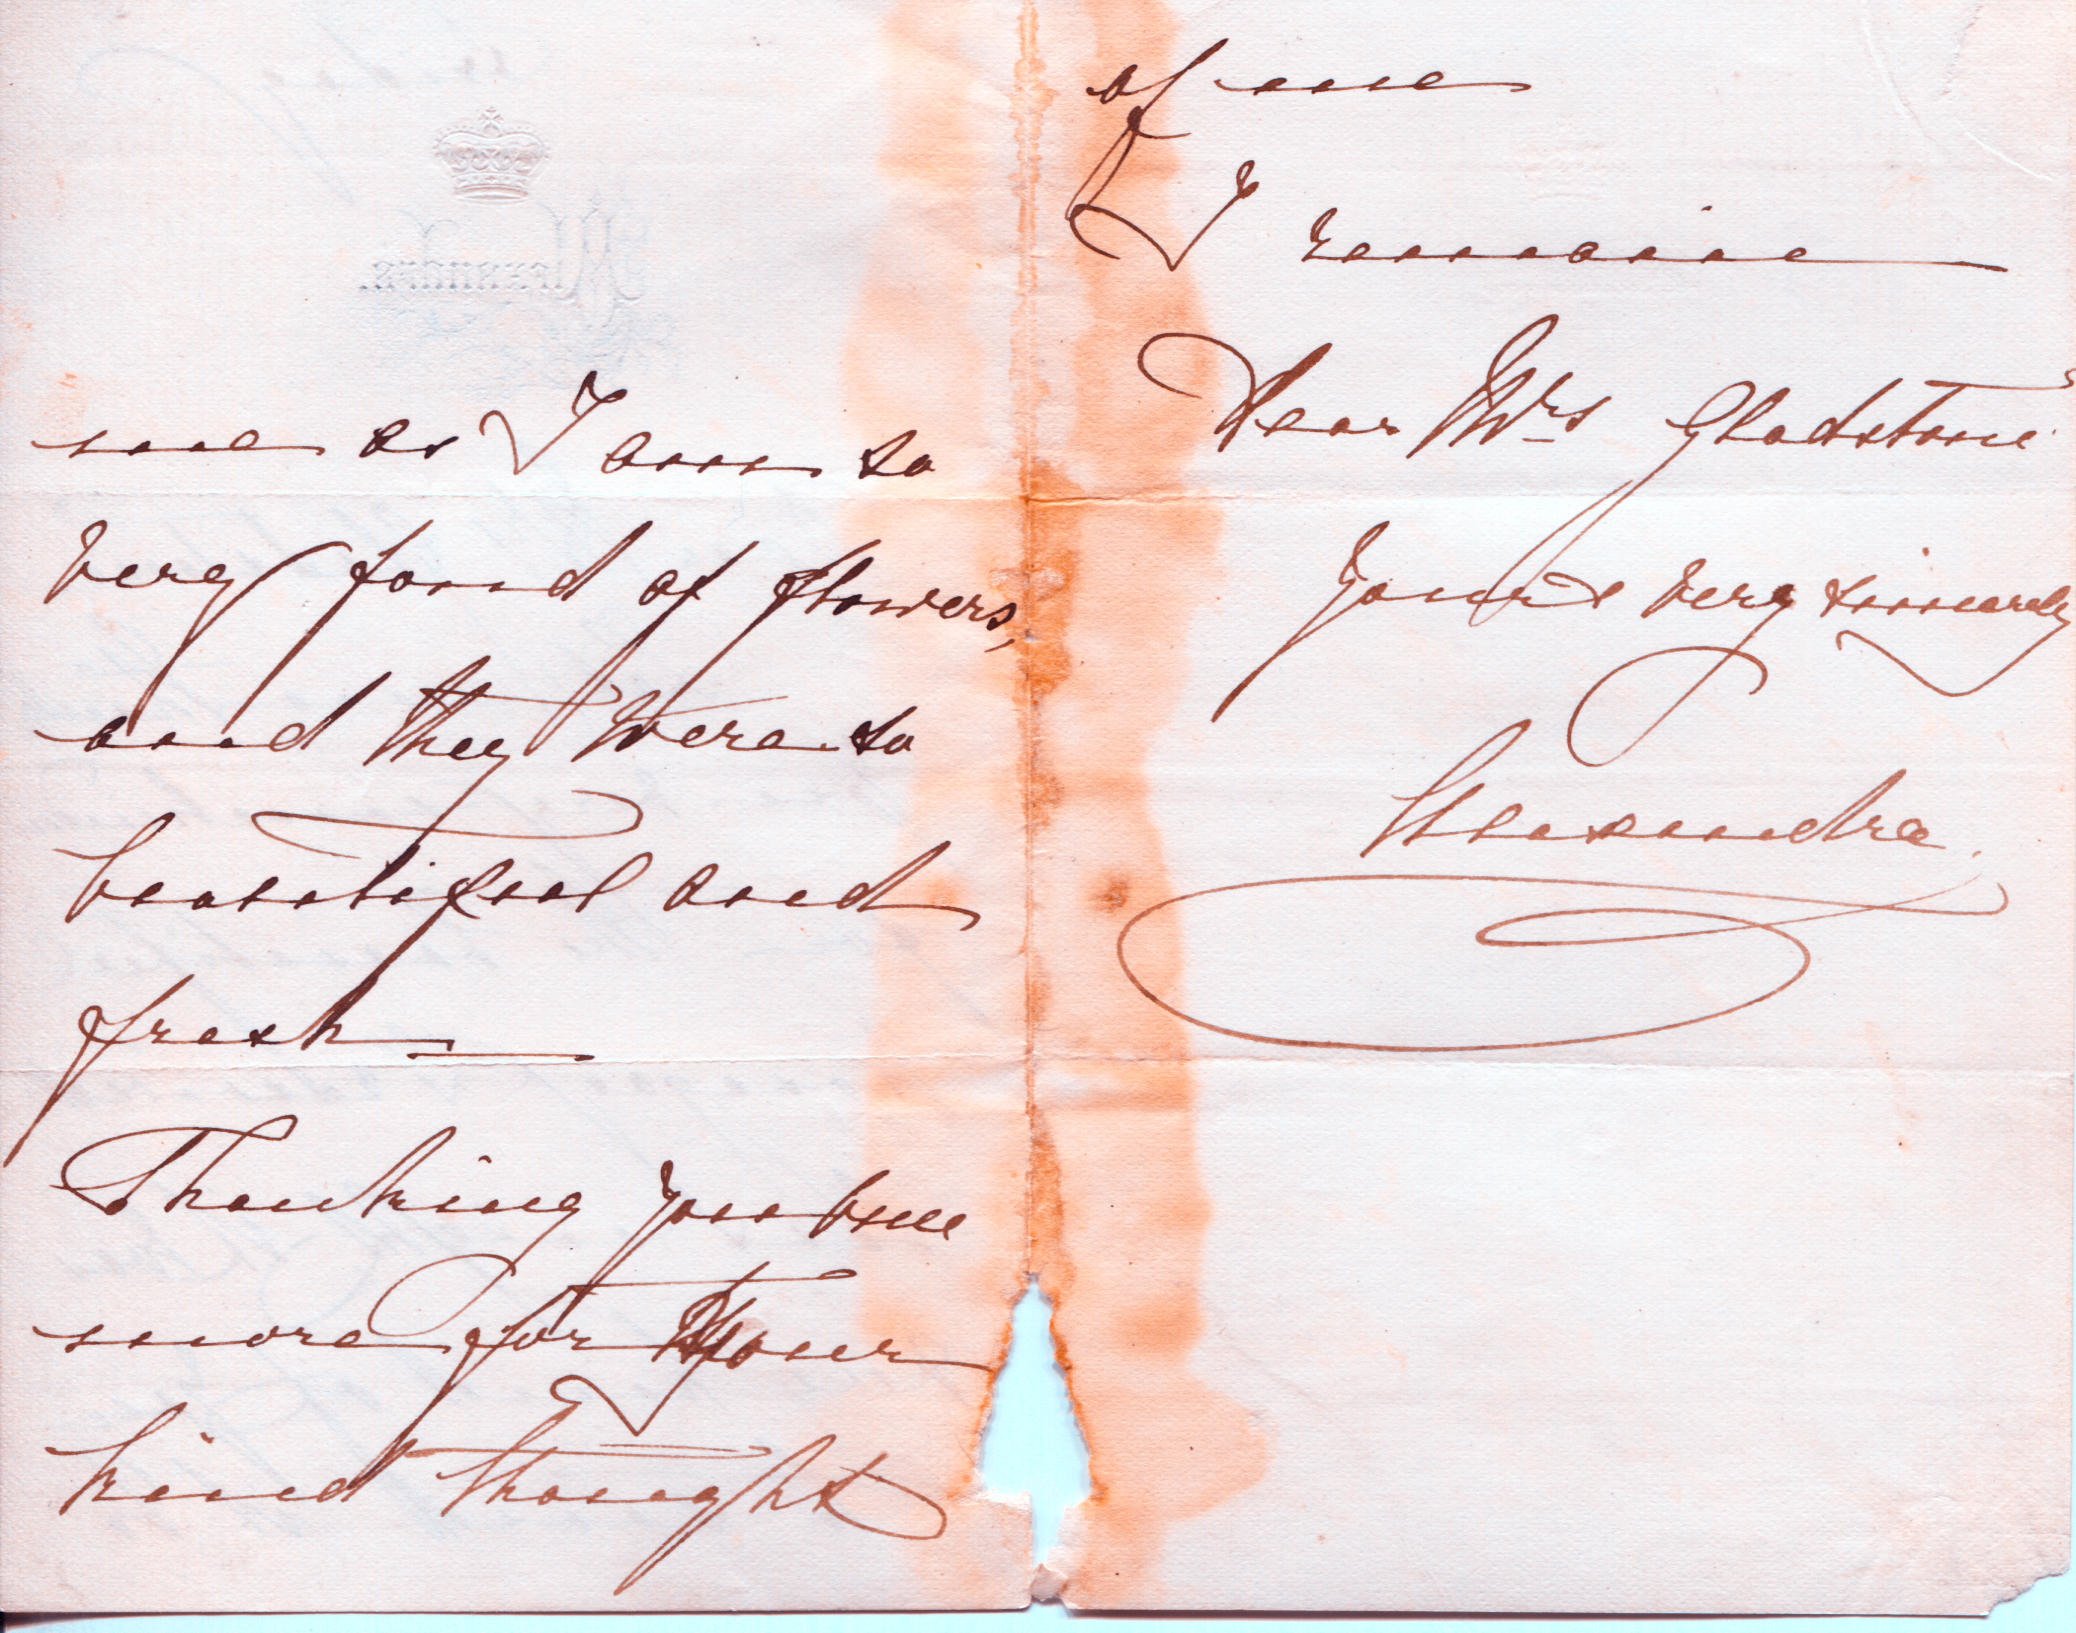 me as I am so
very fond of flowers,
and they were so
beautiful and
fresh —
Thanking you once
more for your
kind thought
of me
I remain
Dear Mrs Gladstone
Yours very sincerely
Alexandra.
Alexandra.